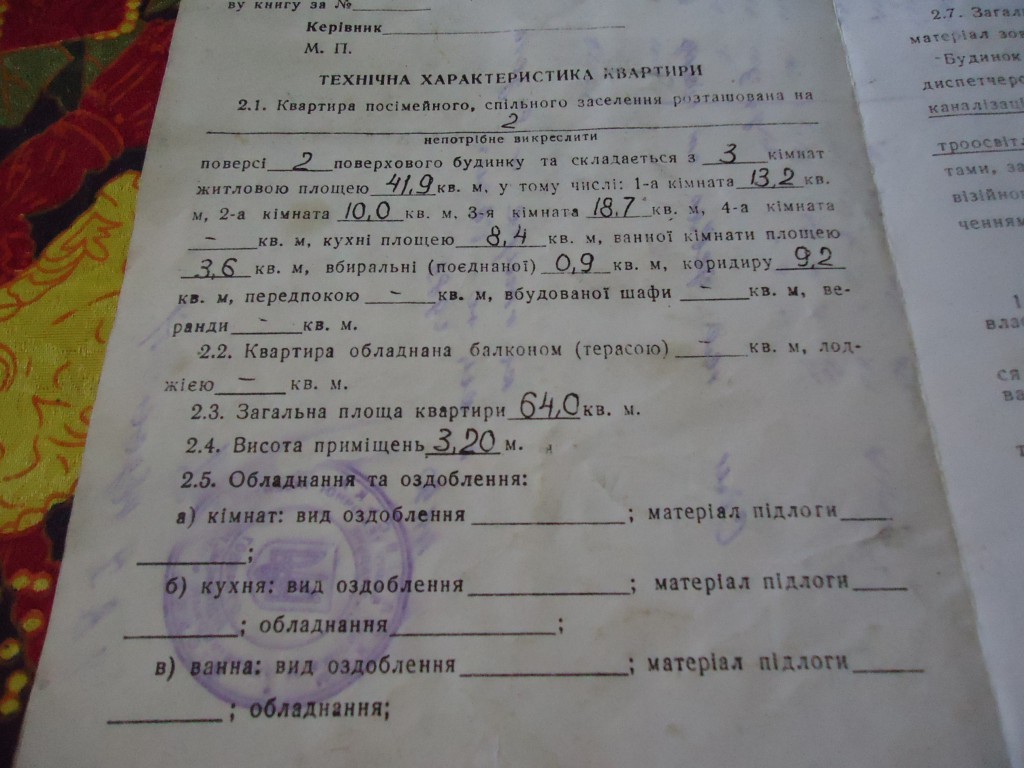 ву книгу за №
Керівник
М. П.
ТЕХНІЧНА ХАРАКТЕРИСТИКА КВАРТИРИ
2.1. Квартира посімейного, спільного заселення розташована на
2
непотрібне викреслити
поверсі 2 поверхового будинку та складається з 3 кімнат
житловою площею 41,9 кв. м, у тому числі: 1-а кімната 13,2 кв.
м, 2-а кімната 10,0 кв. м, 3-я кімната 18,7 кв. м, 4-а кімната
– кв. м, кухні площею 8,4 кв. м, ванної кімнати площею
3,6 кв. м, вбиральні (поєднаної) 0,9 кв. м, коридиру 9,2
кв. м, передпокою – кв. м, вбудованої шафи – кв. м, ве-
ранди – кв. м.
2.2. Квартира обладнана балконом (терасою) – кв. м, лод-
жією – кв. м.
2.3. Загальна площа квартири 64,0 кв. м.
2.4. Висота приміщень 3,20 м.
2.5. Обладнання та оздоблення:
а) кімнат: вид оздоблення ; матеріал підлоги
;
б) кухня: вид оздоблення ; матеріал підлоги
; обладнання ;
в) ванна: вид оздоблення ; матеріал підлоги
; обладнання;
2.7. Загал
матеріал зов
-Будинок
диспетчеро
каналізаці
троосвітл
тами, за
візійно
ченням